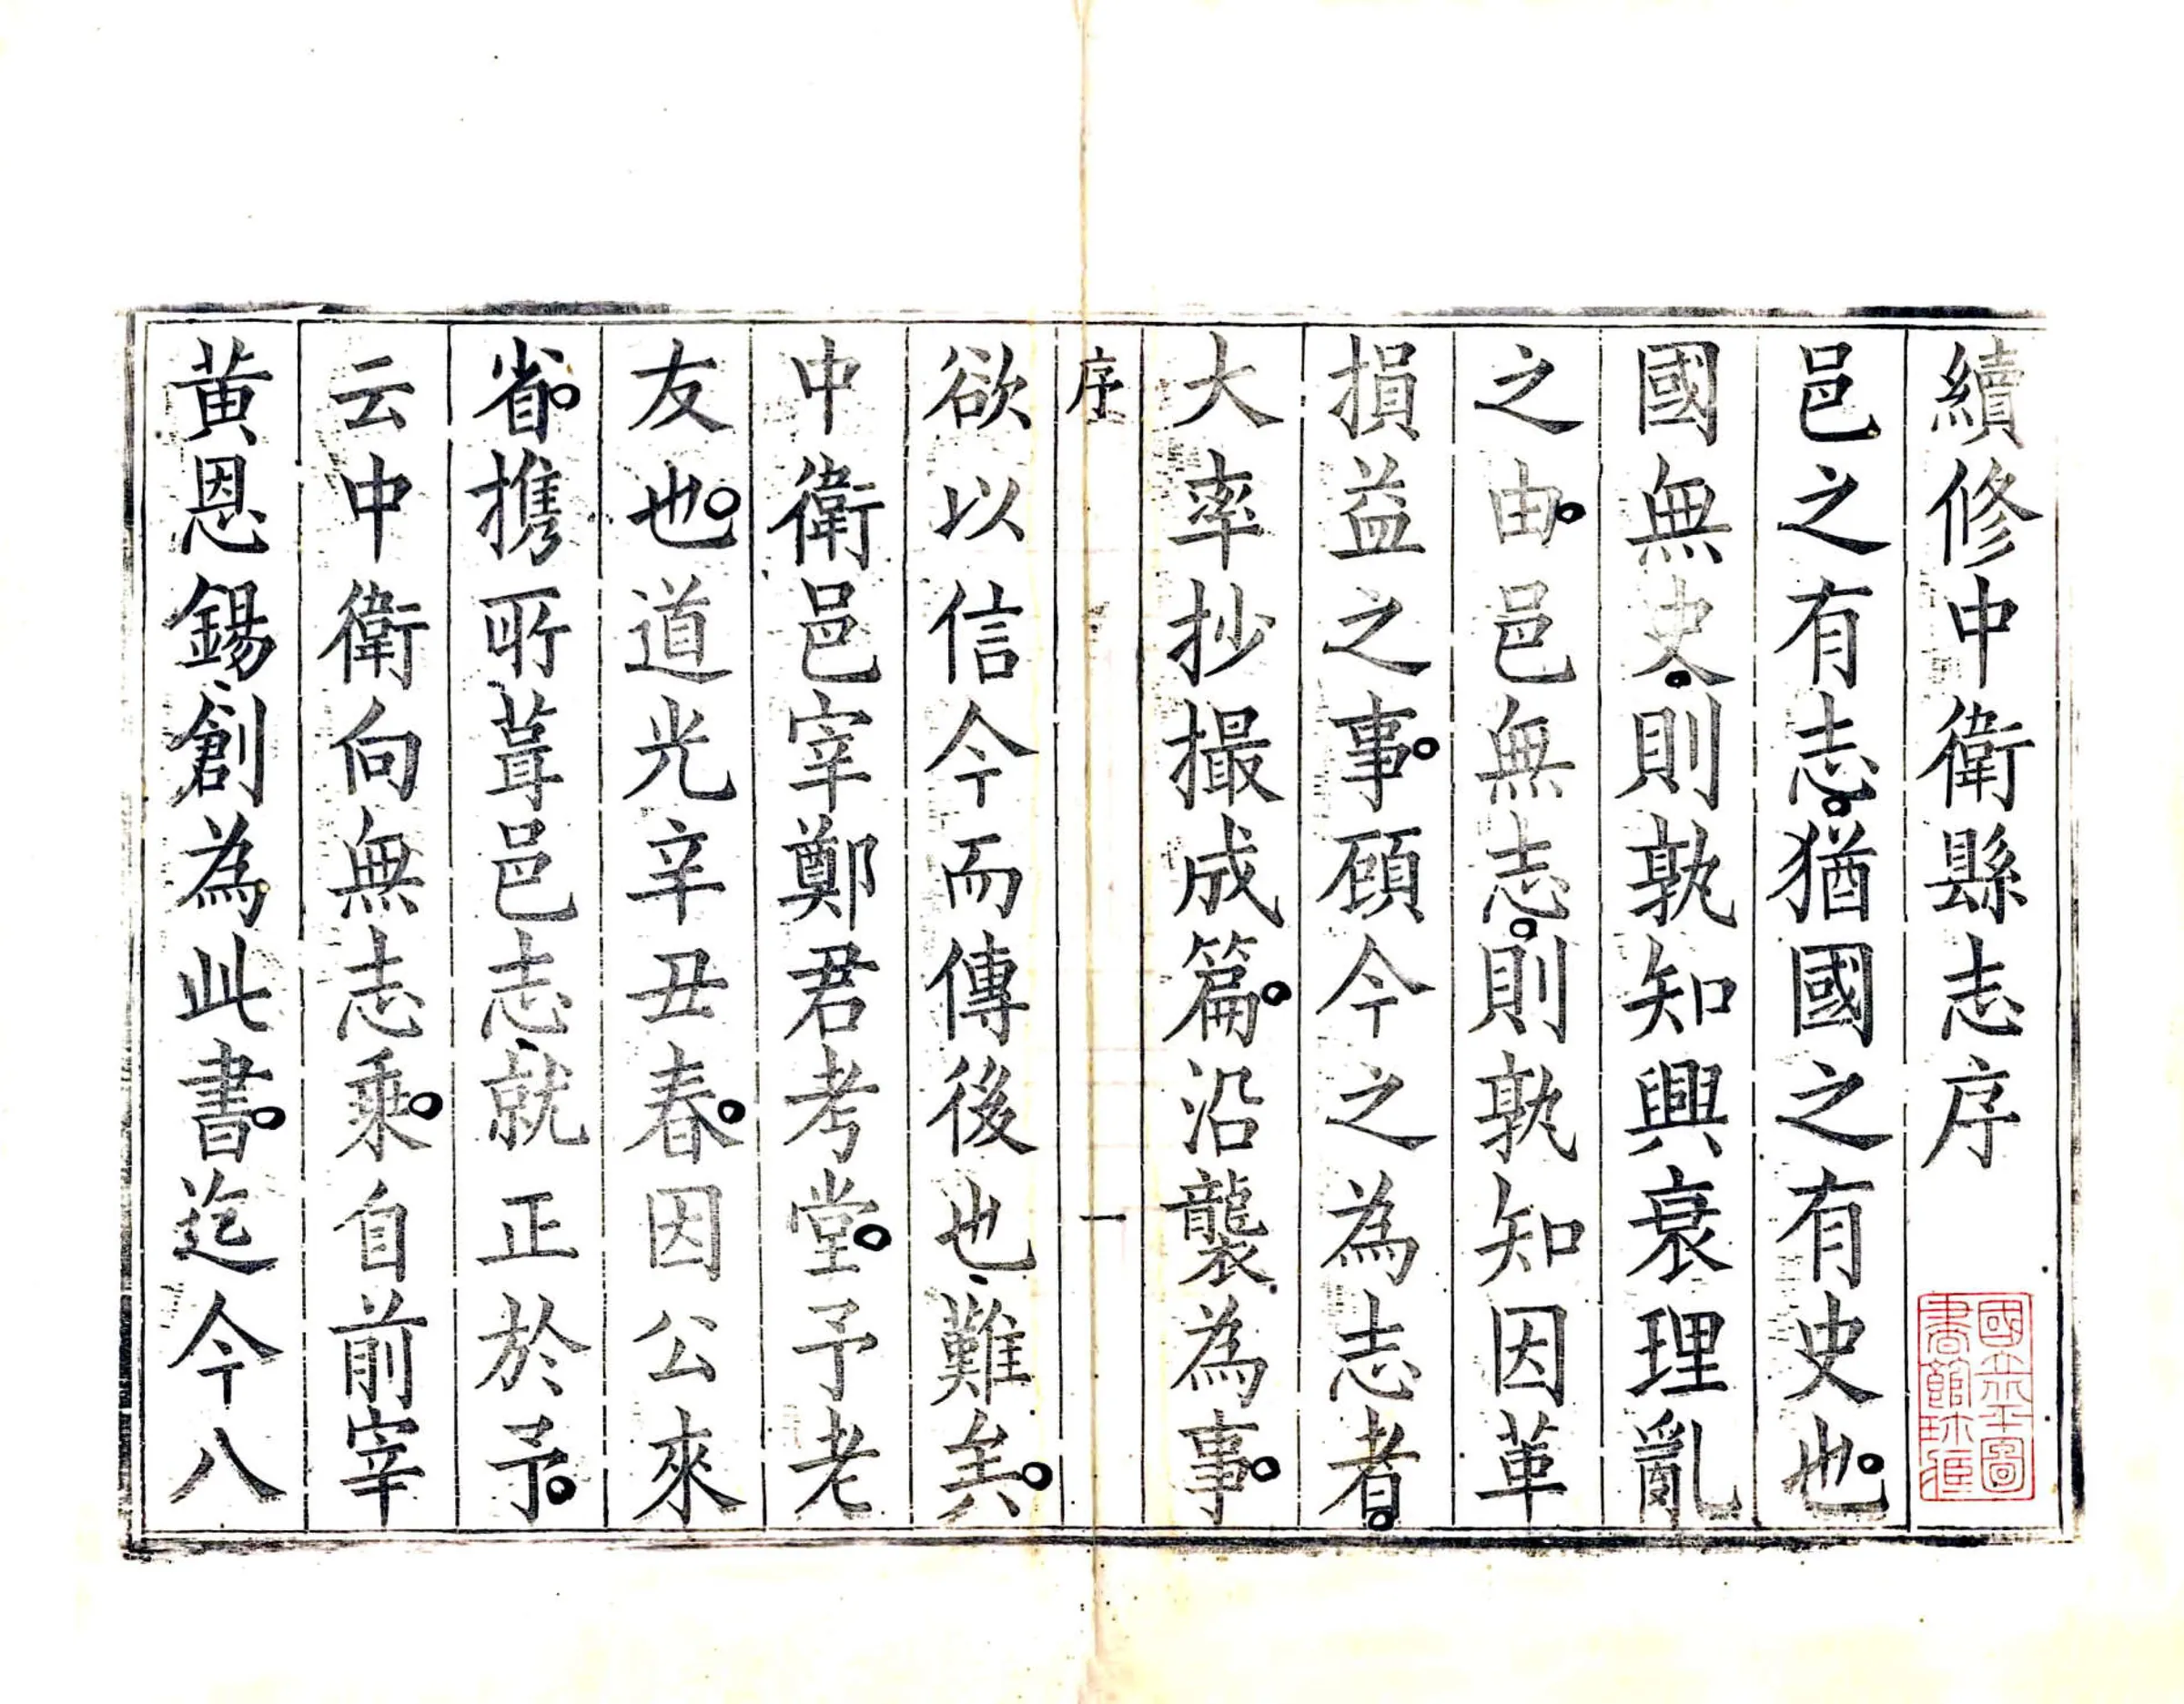 續修中衛縣志序
邑之有志。猶國之有史也。
國無史。則孰知興衰理亂
之由。邑無志。則孰知因革
損益之事。顧今之為志者。
大率抄撮成篇。沿襲為事。
序 一
欲以信今而傳後也、難矣。
中衛邑宰鄭君考堂。予老
友也。道光辛丑春。因公來
省。携所葺邑志、就正於予。
云中衛向無志乘。自前宰
黃恩錫、創為此書。迄今八
國立北平圖
書館珍藏